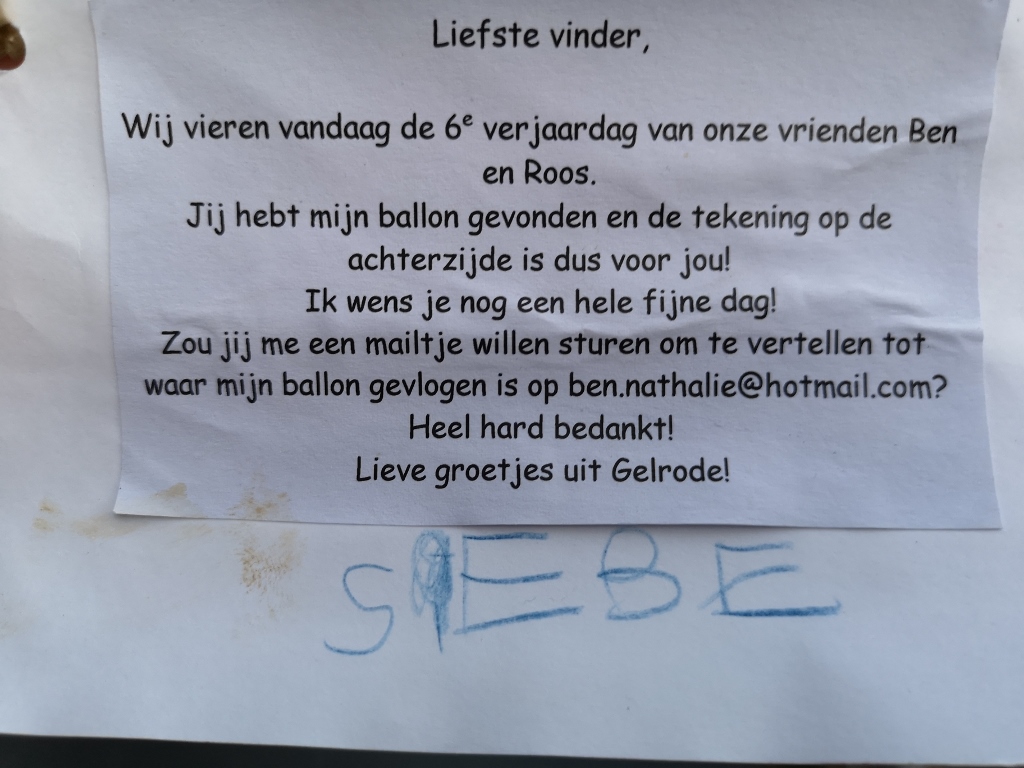 Liefste vinder,
Wij vieren vandaag de 6e verjaardag van onze vrienden Ben
en Roos.
Jij hebt mijn ballon gevonden en de tekening op de
achterzijde is dus voor jou!
Ik wens je nog een hele fijne dag!
Zou jij me een mailtje willen sturen om te vertellen tot
waar mijn ballon gevlogen is op ben.nathalie@hotmail.com?
Heel hard bedankt!
Lieve groetjes uit Gelrode!
SIEBE